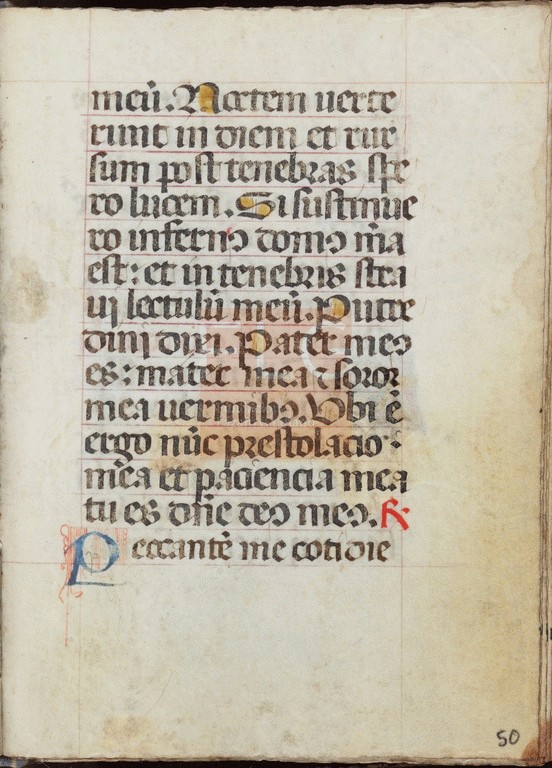 meū. Noctem uerte
runt in diem et rur
sum post tenebras spe
ro lucem. Si sustinue
ro infernꝰ domꝰ m̄a
est: et in tenebris stra
ui lectulū meū. Putre
dini dixi. Pater meꝰ
es: mater mea ⁊ soror
mea uermibꝰ. Ubi ē
ergo nūc prestolacio
m̄ea et paciencia mea
tu es dn̄e deꝰ meꝰ. ℟
Peccantē me cotidie
50